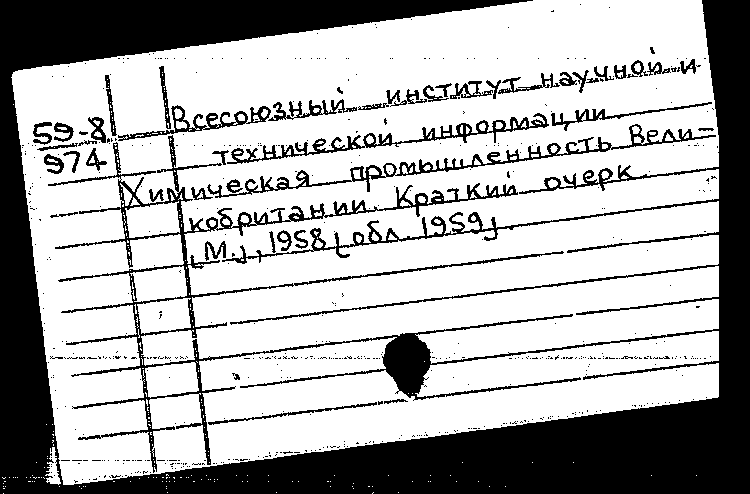 59-8
974
Всесоюзный институт научной и
технической информации
Химическая промышленность Вели-
кобритании. Краткий очерк
[М.], 1958 [обл. 1959].